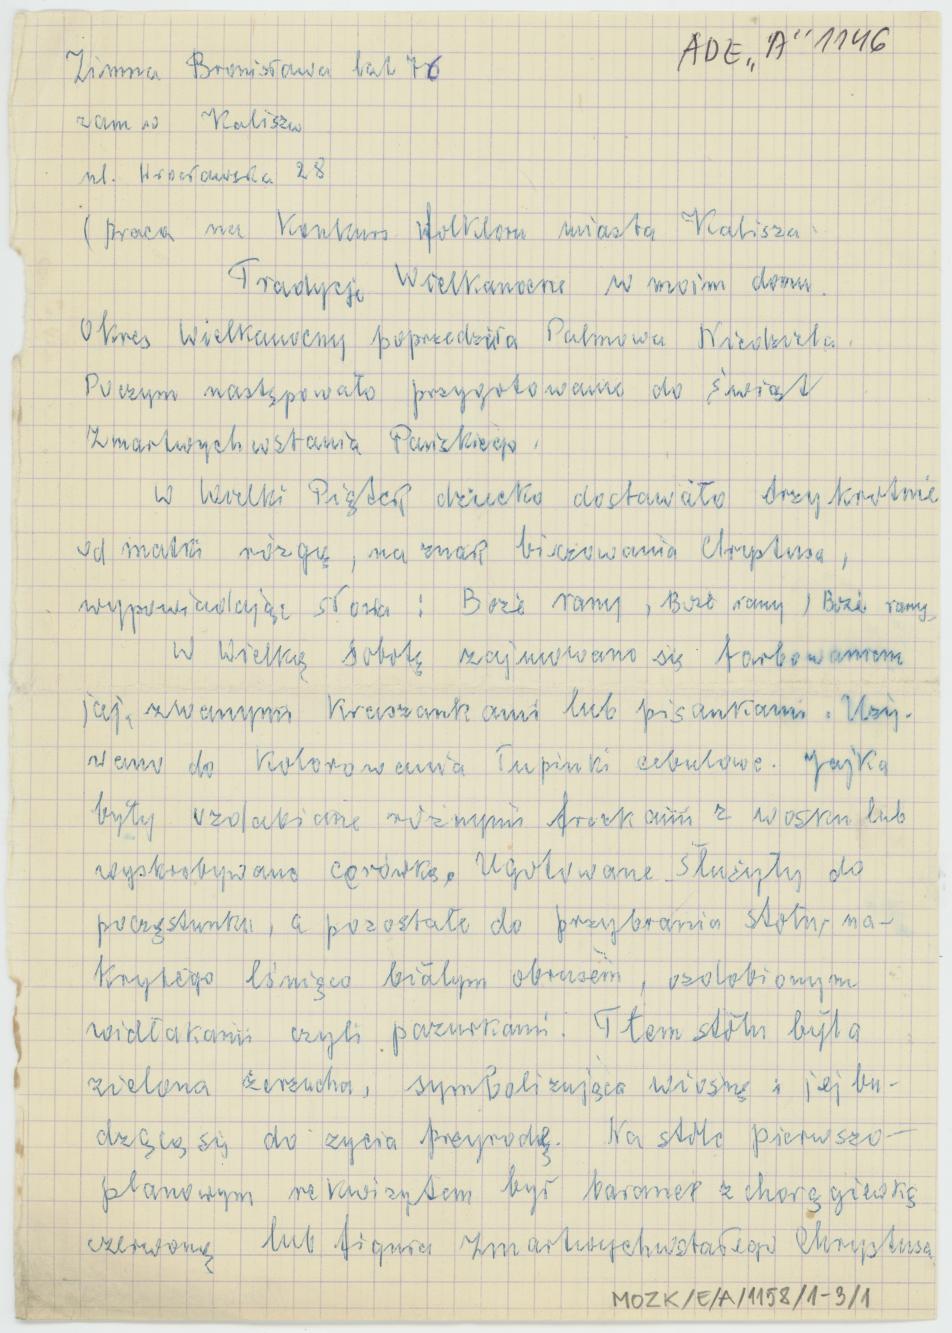 ADE „A" 1146
Zimna Bronisława lat 76
zam w Kaliszu
ul. Wrocławska 28
(praca na Konkurs folkloru miasta Kalisza.
Tradycje Wielkanocne w moim domu.
Okres Wielkanocny poprzedziła Palmowa Niedziela.
Poczym następowało przygotowanie do świąt
Zmartwychwstania Pańskiego.
W Wielki Piątek dziecko dostawało trzykrotnie
od matki rózgę, na znak biczowania Chrystusa,
wypowiadając słowa: Boże rany, Boże rany, Boże rany,
W Wielką Sobotę zajmowano się farbowaniem
jaj, zwanymi kraszankami lub pisankami. Uży-
wano do kolorowania łupinki cebulowe. Jajka
były ozdabiane różnymi froekami z wosku lub
wyskrobywane cerówką. Ugotowane służyły do
poczęstunku, a pozostałe do przybrania stołu, na-
krytego lśniąco białym obrusem, ozdobionym
widłakami czyli pazurkami. Tłem stołu była
zielona żerzucha, symbolizująca wiosnę i jej bu-
dzącą się do życia przyrodę. Na stole pierwszo-
planowym rekwizytem był baranek z chorągiewką
czerwoną lub figura Zmartwychwstałego Chrystusa
MOZK/E/A/1158/1-3/1